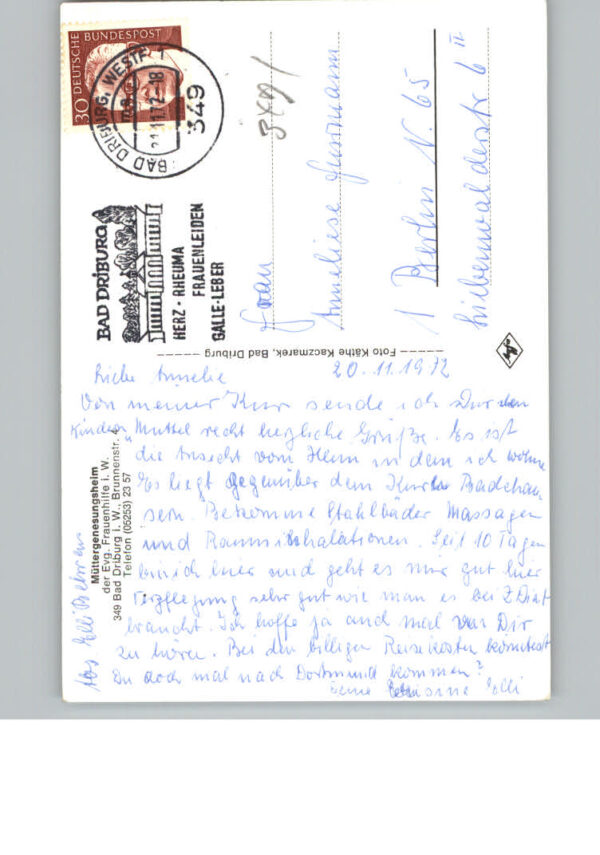 DEUTSCHE BUNDESPOST
30
BAD DRIBURG, WESTF 1
21.11.72-18
349
BAD DRIBURG
HERZ · RHEUMA
FRAUENLEIDEN
GALLE-LEBER
Frau
Anneliese
1 Berlin N. 65
Liebenwalderstr 6 II
Foto Käthe Kaczmarek, Bad Driburg
Agfa
Müttergenesungsheim
der Evg. Frauenhilfe i. W.
349 Bad Driburg i. W., Brunnenstr. 4
Telefon (05253) 23 57
20.11.1972
Liebe
Von meiner Kur sende ich Dir den
Kindern Muttel recht herzliche Grüße. Es ist
die Ansicht vom Heim in dem ich wohne
Es liegt gegenüber dem Badehäu
sern. Bekomme Stahlbäder Massagen
und Rauminhalationen. Seit 10 Tagen
bin ich hier und geht es mir gut hier
Verpflegung sehr gut wie man es bei Z Diät
braucht. Ich hoffe ja auch mal von Dir
zu hören. Bei den billigen Reisekosten könntest
Du doch mal nach Dortmund kommen?
Deine Cousine Elli
Abs Elli Behrens